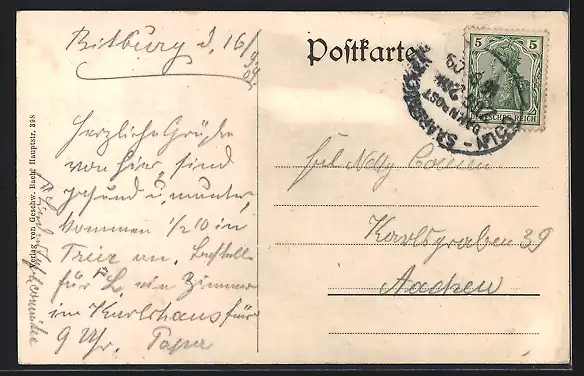 Bitburg d. 16/9 09.
Postkarte
5
DEUTSCHES REICH
CÖLN - SAARBRÜCKEN
BAHNPOST
Herzliche Grüße
von hier, sind
gesund u. munter,
kommen ½ 10 in
Trier an. Bestelle
für ein Zimmer
im Karlshaus für
9 Uhr. Papa
Frl Nelly
Karlsgraben 39
Aachen
Verlag von Geschw. Bach, Hauptstr. 398